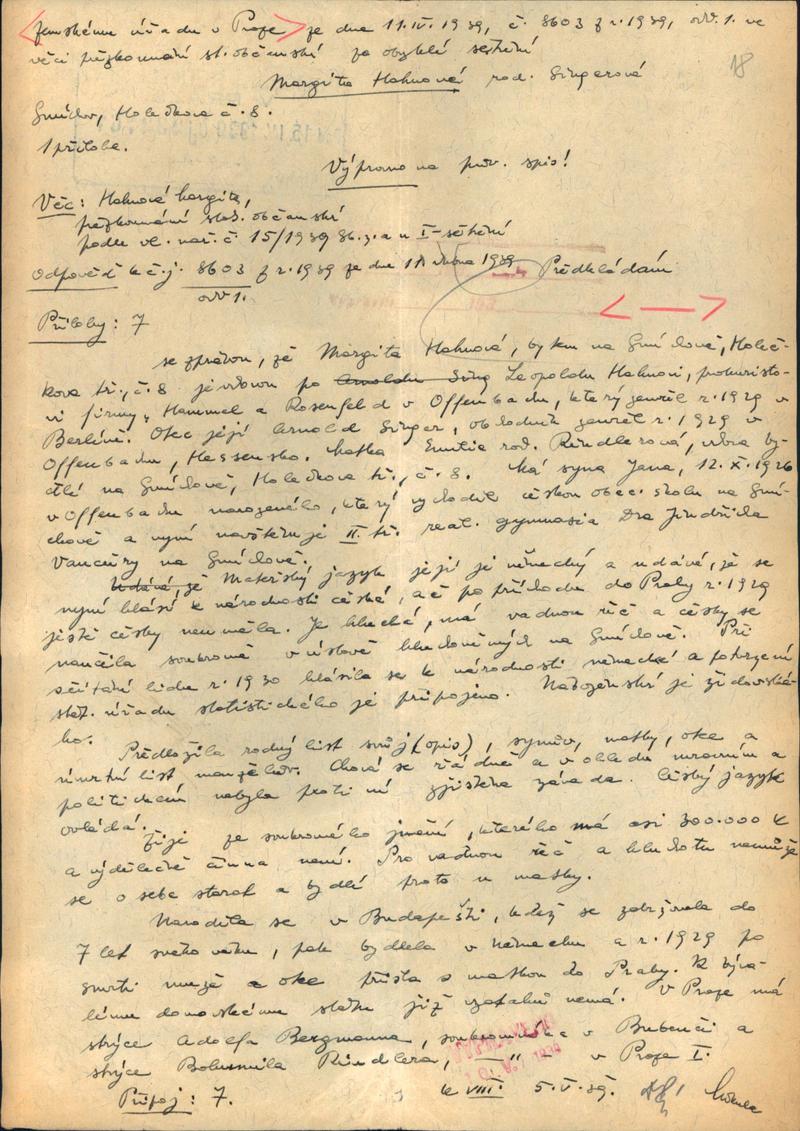 Zemskému úřadu v Praze ze dne 11.IV.1939, č. 8603 z r. 1939, odd. 1. ve
věci přezkoumání st. občanství po obvyklé šetření
18
Margita Hahnová roz. Singerová
Smíchov, Holečkova č. 8.
1 příloha.
Výpravno na pův. spis!
Věc: Hahnová Margita,
přezkoumání stát. občanství
podle vl. nař. č. 15/1939 Sb.z. a n I-šetření
Odpověď k č.j. 8603 z r. 1939 ze dne 11. dubna 1939 Předkládám
odd 1.
Přílohy: 7
se zprávou, že Margita Hahnová, bytem na Smíchově, Holeč-
kova tř., č. 8 je vdovou po Leopoldu Hahnovi, prokuristo-
vi firmy "Hammel a Rosenfeld v Offenbachu, který zemřel r. 1929 v
Berlíně. Otec její Arnold Singer, obchodník zemřel r. 1929 v
Offenbachu, Hessensko. Matka Emilia roz. Rindlerová, vdova by-
dlí na Smíchově, Holečkova tř., č. 8. Má syna Jana, 12.X.1926
v Offenbachu narozeného, který vychodil českou obec. školu na Smí-
chově a nyní navštěvuje II. tř. reál. gymnasia Dra Jindřicha
Vančury na Smíchově.
Udává, že Mateřský jazyk její je německý a udává, že se
nyní hlásí k národnosti české, ač po příchodu do Prahy r. 1929
ještě česky neuměla. Je hluchá, má vadnou řeč a česky se
naučila soukromě v ústavě hluchoněmých na Smíchově. Při
sčítání lidu r. 1930 hlásila se k národnosti německé a potvrzení
stát. úřadu statistického je připojeno. Náboženství je židovské-
ho.
Předložila rodný list svůj (opis), synův, matky, otce a
úmrtní list manželův. Chová se řádně a v ohledu mravním a
politickém nebyla proti ní zjištěna závada. Český jazyk
ovládá.
Žije ze soukromého jmění, kterého má asi 300.000 K
a výdělečně činna není. Pro vadnou řeč a hluchotu nemůže
se o sebe starat a bydlí proto u matky.
Narodila se v Budapešti, kdež se zdržovala do
7 let svého věku, pak bydlela v Německu a r. 1929 po
smrti muže a otce přišla s matkou do Prahy. K býva-
lému domovskému státu již vztahů nemá. V Praze má
strýce Adolfa Bergmanna, soukromníka v Bubenči a
strýce Bohumila Rindlera, —"— v Praze I.
Připoj: 7. k VIII. 5.V.39.